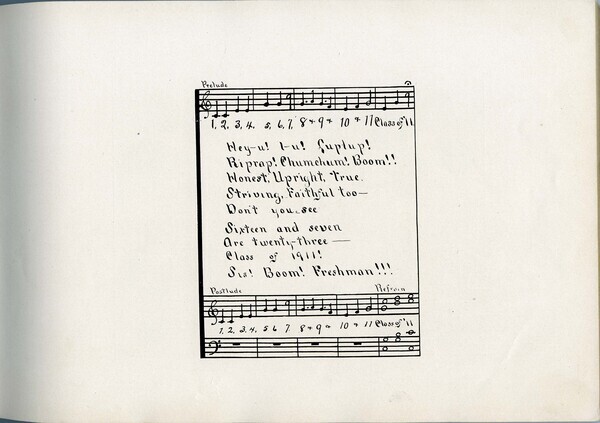 Prelude
1, 2, 3, 4, 5, 6, 7, 8 + 9 + 10 + 11 Class of '11
Hey-u! 1-u! Guplup!
Riprap! Chumchum! Boom!!
Honest, Upright, True.
Striving, Faithful too—
Don't you see
Sixteen and seven
Are twenty-three —
Class of 1911!
Sis! Boom! Freshman!!!
Postlude Refrain
1, 2, 3, 4 5 6 7 8 + 9 + 10 + 11 Class of '11